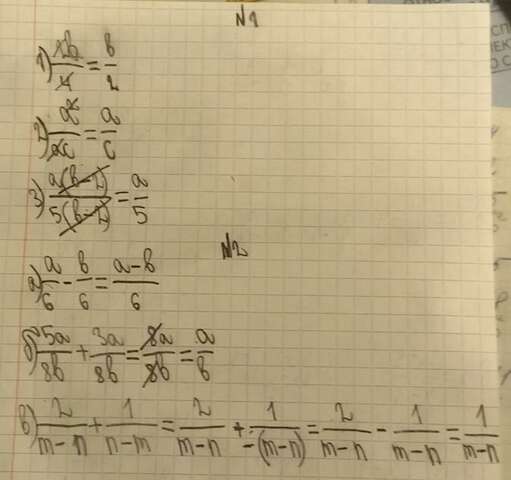 №1
1) 2b/4 = b/2
2) a²/ac = a/c
3) a(b-2)/5(b-2) = a/5
№2
а) a/6 - b/6 = a-b/6
б) 5a/8b + 3a/8b = 8a/8b = a/b
в) 2/m-n + 1/n-m = 2/m-n + 1/-(m-n) = 2/m-n - 1/m-n = 1/m-n